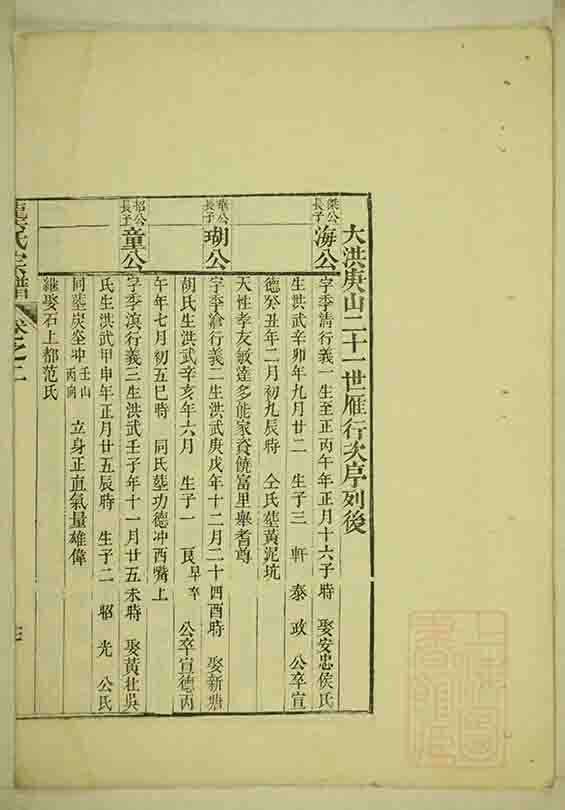 大洪庚山二十一世雁行次序列後
榮公長子
海公
字季清行義一生至正丙午年正月十六子時　娶安忠侯氏
生洪武辛卯年九月廿二　生子三　軒　泰　政　公卒宣
德癸丑年二月初九辰時　仝氏塟黃泥坑
天性孝友敏達多能家資饒富里舉耆尊
華公長子
瑚公
字季滄行義二生洪武庚戌年十二月二十四酉時　娶新塘
胡氏生洪武辛亥年六月　生子一　艮早卒　公卒宣德丙
午年七月初五巳時　同氏塟功德冲西嘴上
招公長子
童公
字季滇行義三生洪武壬子年十一月廿五未時　娶黃壯吳
氏生洪武甲申年正月廿五辰時　生子二　昭　光　公氏
同塟炭窑冲壬山丙向　立身正直氣量雄偉
繼娶石上都范氏
氏宗譜
卷之二